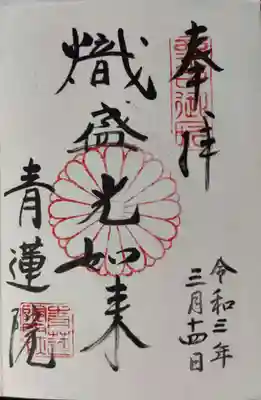 奉拝
令和三年
三月十四日
熾盛光如来
青蓮院